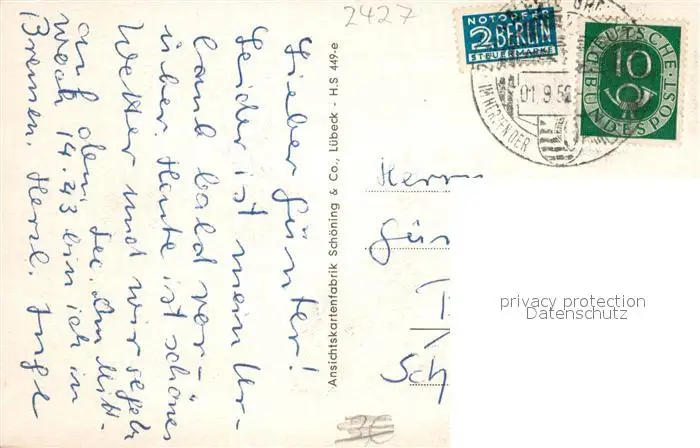 2427
NOTOPFER
2 BERLIN
STEUERMARKE
DEUTSCHE
BUNDESPOST
10
01.9.52
IM HERZEN DER
Lieber Günter!
Leider ist mein Ur-
laub bald vor-
über. Heute ist schönes
Wetter und wir segeln
auf dem See. Am Mitt-
woch 14.43 bin ich in
Bremen. Herzl. Inge
Ansichtskartenfabrik Schöning & Co., Lübeck - H.S 449-e
Herrn
Gün
Sch
privacy protection
Datenschutz